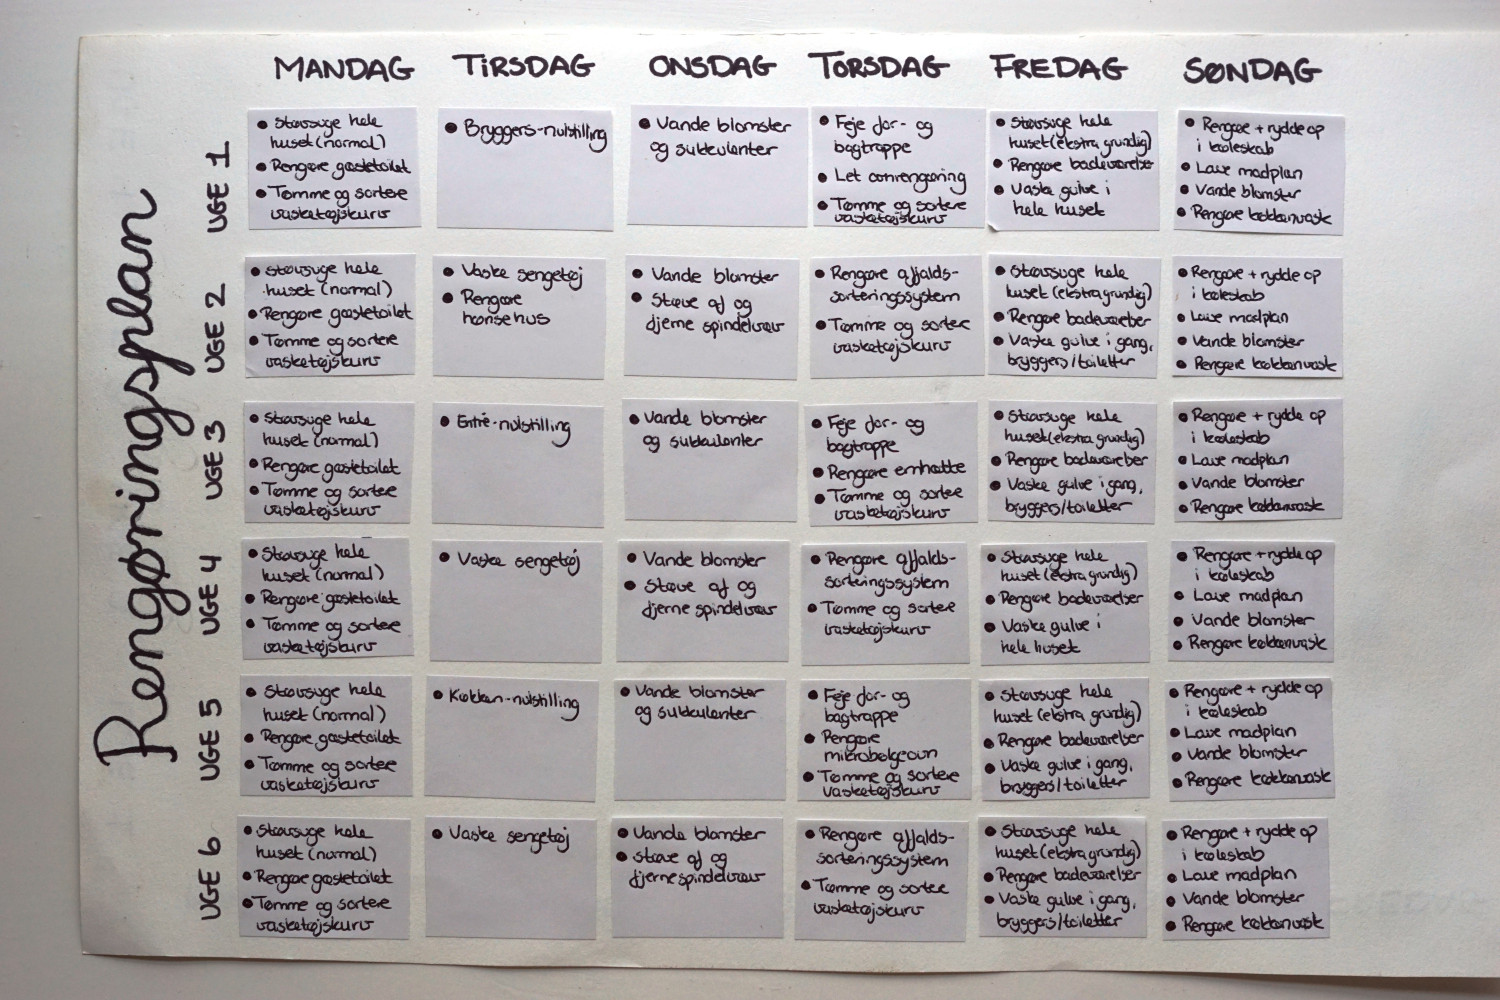 Rengøringsplan
MANDAG TIRSDAG ONSDAG TORSDAG FREDAG SØNDAG
UGE 1
• Støvsuge hele
huset (normal)
• Rengøre gæstetoilet
• Tømme og sortere
vasketøjskurv
• Bryggers-nulstilling
• Vande blomster
og sukkulenter
• Feje for- og
bagtrappe
• Let ovnrengøring
• Tømme og sortere
vasketøjskurv
• Støvsuge hele
huset (ekstra grundig)
• Rengøre badeværelser
• Vaske gulve i
hele huset
• Rengøre + rydde op
i køleskab
• Lave madplan
• Vande blomster
• Rengøre køkkenvask
UGE 2
• Støvsuge hele
huset (normal)
• Rengøre gæstetoilet
• Tømme og sortere
vasketøjskurv
• Vaske sengetøj
• Rengøre
hønsehus
• Vande blomster
• Støve af og
fjerne spindelvæv
• Rengøre affalds-
sorteringssystem
• Tømme og sortere
vasketøjskurv
• Støvsuge hele
huset (ekstra grundig)
• Rengøre badeværelser
• Vaske gulve i gang,
bryggers/toiletter
• Rengøre + rydde op
i køleskab
• Lave madplan
• Vande blomster
• Rengøre køkkenvask
UGE 3
• Støvsuge hele
huset (normal)
• Rengøre gæstetoilet
• Tømme og sortere
vasketøjskurv
• Entré-nulstilling
• Vande blomster
og sukkulenter
• Feje for- og
bagtrappe
• Rengøre emhætte
• Tømme og sortere
vasketøjskurv
• Støvsuge hele
huset (ekstra grundig)
• Rengøre badeværelser
• Vaske gulve i gang,
bryggers/toiletter
• Rengøre + rydde op
i køleskab
• Lave madplan
• Vande blomster
• Rengøre køkkenvask
UGE 4
• Støvsuge hele
huset (normal)
• Rengøre gæstetoilet
• Tømme og sortere
vasketøjskurv
• Vaske sengetøj
• Vande blomster
• Støve af og
fjerne spindelvæv
• Rengøre affalds-
sorteringssystem
• Tømme og sortere
vasketøjskurv
• Støvsuge hele
huset (ekstra grundig)
• Rengøre badeværelser
• Vaske gulve i
hele huset
• Rengøre + rydde op
i køleskab
• Lave madplan
• Vande blomster
• Rengøre køkkenvask
UGE 5
• Støvsuge hele
huset (normal)
• Rengøre gæstetoilet
• Tømme og sortere
vasketøjskurv
• Køkken-nulstilling
• Vande blomster
og sukkulenter
• Feje for- og
bagtrappe
• Rengøre
mikrobølgeovn
• Tømme og sortere
vasketøjskurv
• Støvsuge hele
huset (ekstra grundig)
• Rengøre badeværelser
• Vaske gulve i gang,
bryggers/toiletter
• Rengøre + rydde op
i køleskab
• Lave madplan
• Vande blomster
• Rengøre køkkenvask
UGE 6
• Støvsuge hele
huset (normal)
• Rengøre gæstetoilet
• Tømme og sortere
vasketøjskurv
• Vaske sengetøj
• Vande blomster
• Støve af og
fjerne spindelvæv
• Rengøre affalds-
sorteringssystem
• Tømme og sortere
vasketøjskurv
• Støvsuge hele
huset (ekstra grundig)
• Rengøre badeværelser
• Vaske gulve i gang,
bryggers/toiletter
• Rengøre + rydde op
i køleskab
• Lave madplan
• Vande blomster
• Rengøre køkkenvask